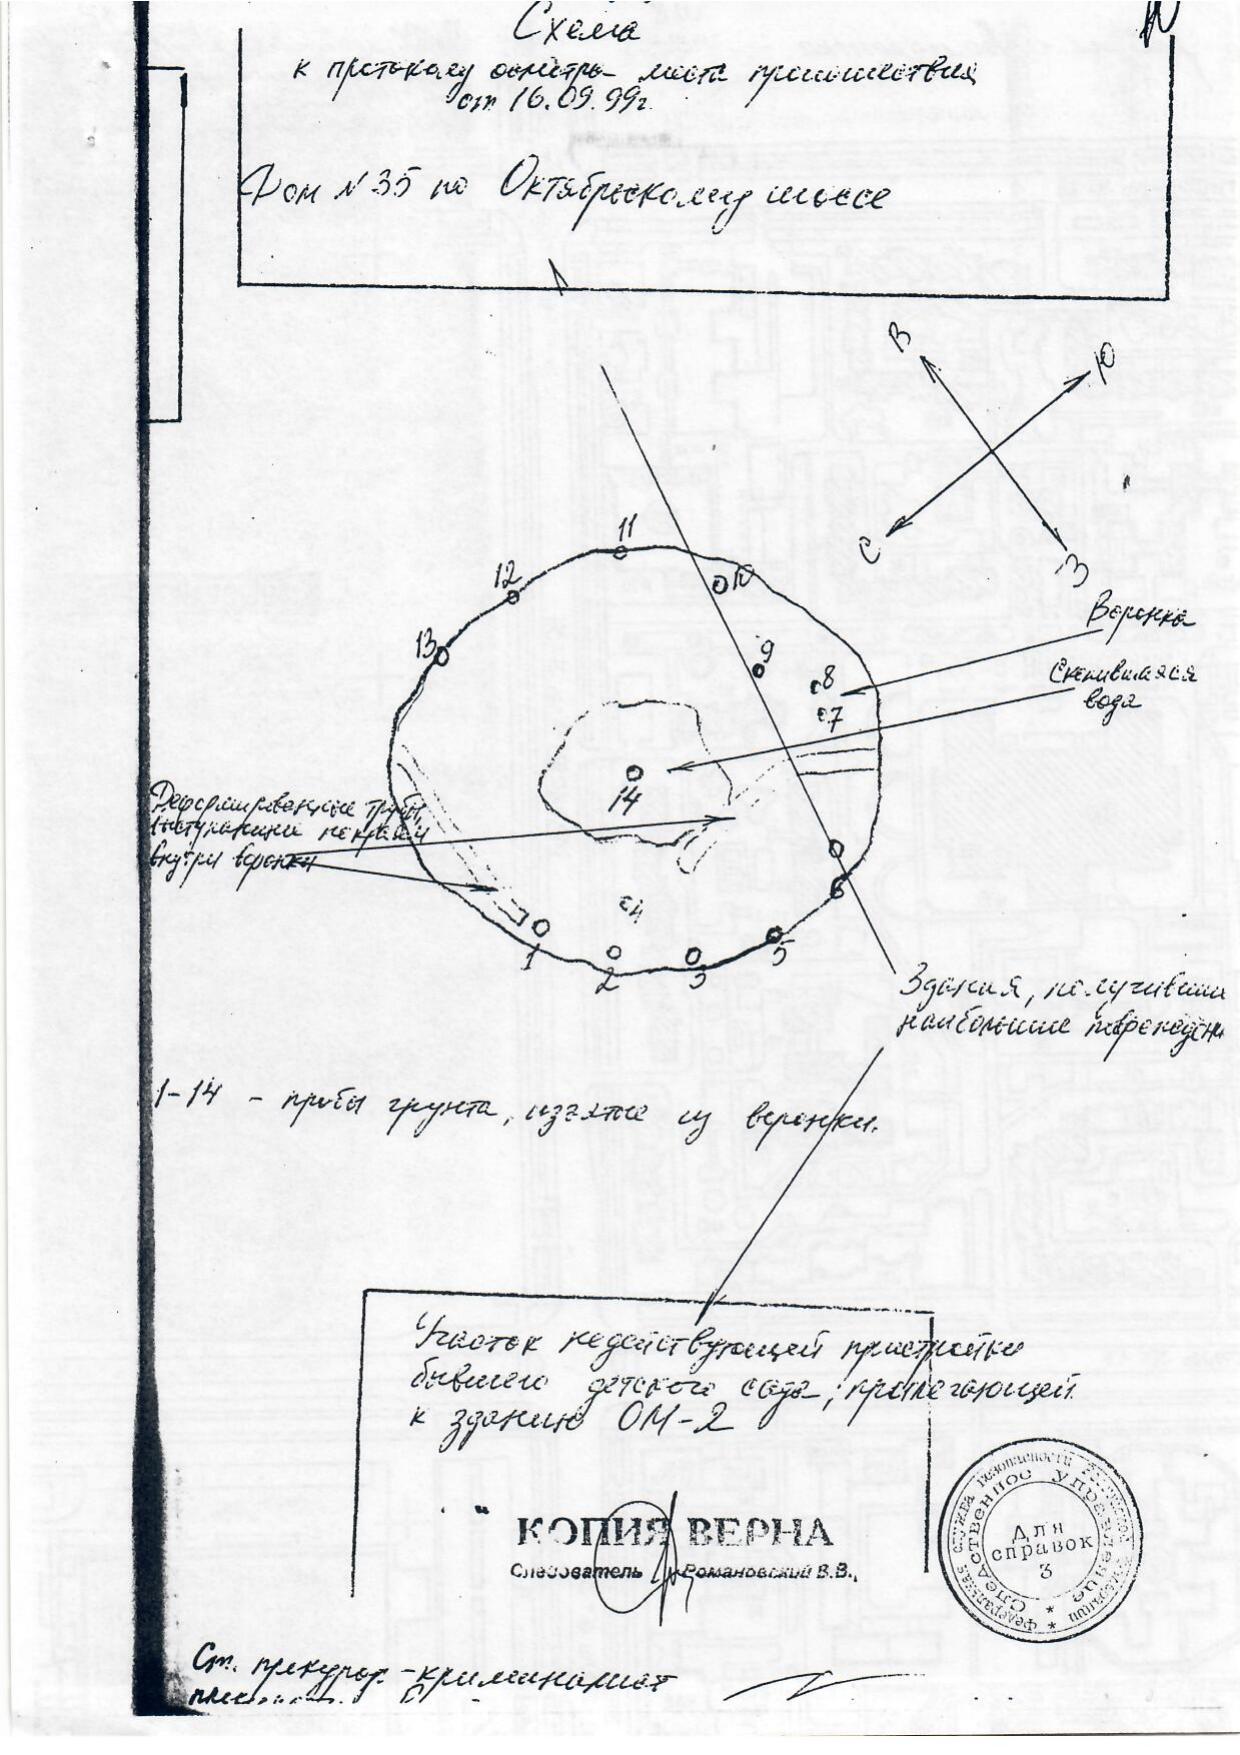 Схема
к протоколу осмотра места происшествия
от 16.09.99г.
Дом N 35 по Октябрьскому шоссе
В
Ю
С
З
11
12
10
13
9
8
7
14
4
6
5
1
2
3
Воронка
Скопившаяся
вода
Деформированные трубы,
выступающие по краям
внутри воронки
Здания, получивши
наибольшие поврежден
1-14 - пробы грунта, изъятые из воронки.
Участок недействующей пристройки
бывшего детского сада, прилегающей
к зданию ОМ-2
КОПИЯ ВЕРНА
Следователь Романовский В.В.
Федеральная служба безопасности Российской Федерации
Следственное Управление
Для
справок
3
Ст. прокурор-криминалист